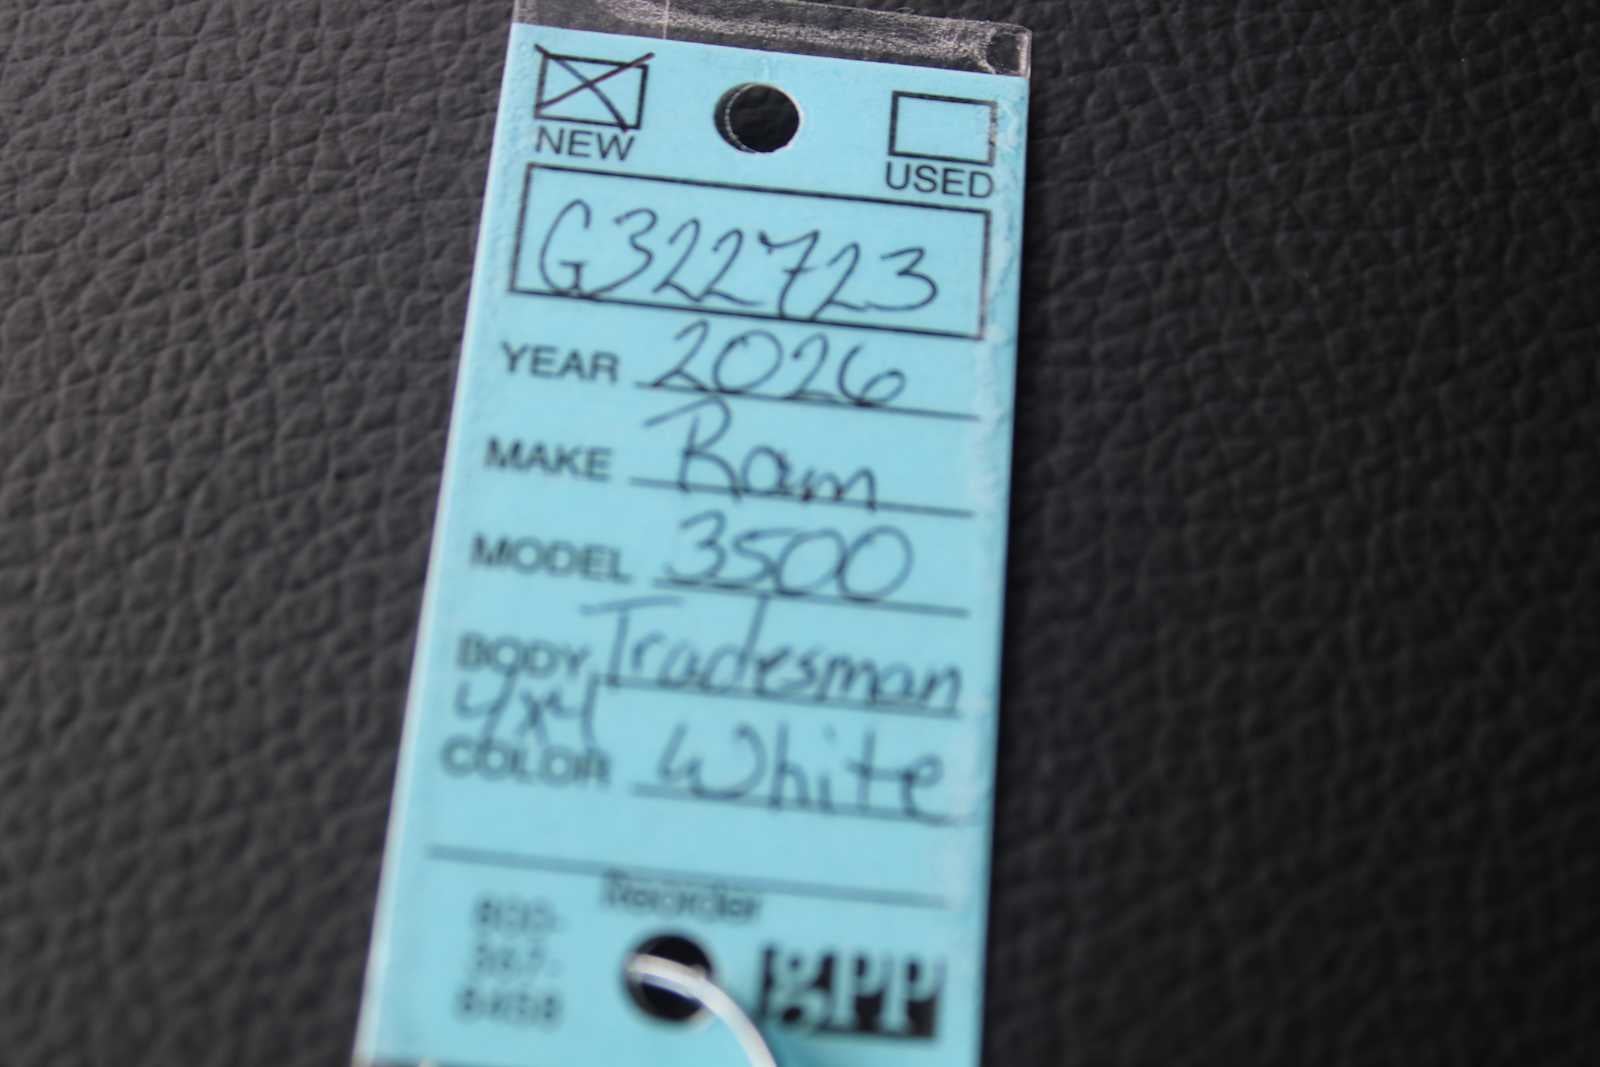 NEW
USED
G322723
YEAR 2026
MAKE Ram
MODEL 3500
BODY Tradesman
4x4
COLOR White
Reorder
800-
367-
8458
gPP